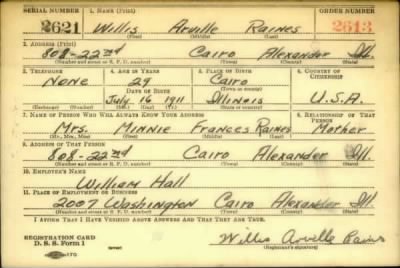 SERIAL NUMBER 1. NAME (Print) ORDER NUMBER
2621 Willis Arville Raines 2613
(First) (Middle) (Last)
2. ADDRESS (Print)
808-22nd Cairo Alexander Ill.
(Street or R. F. D. number) (Town) (County) (State)
3. TELEPHONE 4. AGE IN YEARS 5. PLACE OF BIRTH 6. COUNTRY OF CITIZENSHIP
None 29 Cairo
DATE OF BIRTH (Town or county)
July 16 1911 Illinois U.S.A.
(Exchange) (Number) (Mo.) (Day) (Yr.) (State or country)
7. NAME OF PERSON WHO WILL ALWAYS KNOW YOUR ADDRESS 8. RELATIONSHIP OF THAT PERSON
Mrs. Minnie Frances Raines Mother
(Mr., Mrs., Miss) (First) (Middle) (Last)
9. ADDRESS OF THAT PERSON
808-22nd Cairo Alexander Ill.
(Street and number or R. F. D. number) (Town) (County) (State)
10. EMPLOYER'S NAME
William Hall
11. PLACE OF EMPLOYMENT OR BUSINESS
2007 Washington Cairo Alexander Ill
(Street and number or R. F. D. number) (Town) (County) (State)
I AFFIRM THAT I HAVE VERIFIED ABOVE ANSWERS AND THAT THEY ARE TRUE.
REGISTRATION CARD
D. S. S. Form 1 Willis Arville Raines
(Registrant's signature)